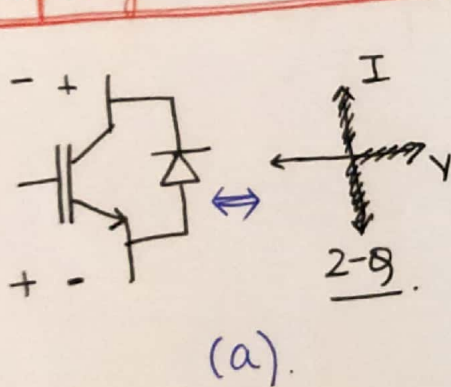 - +
I
V
+ -
2-Q.
(a).